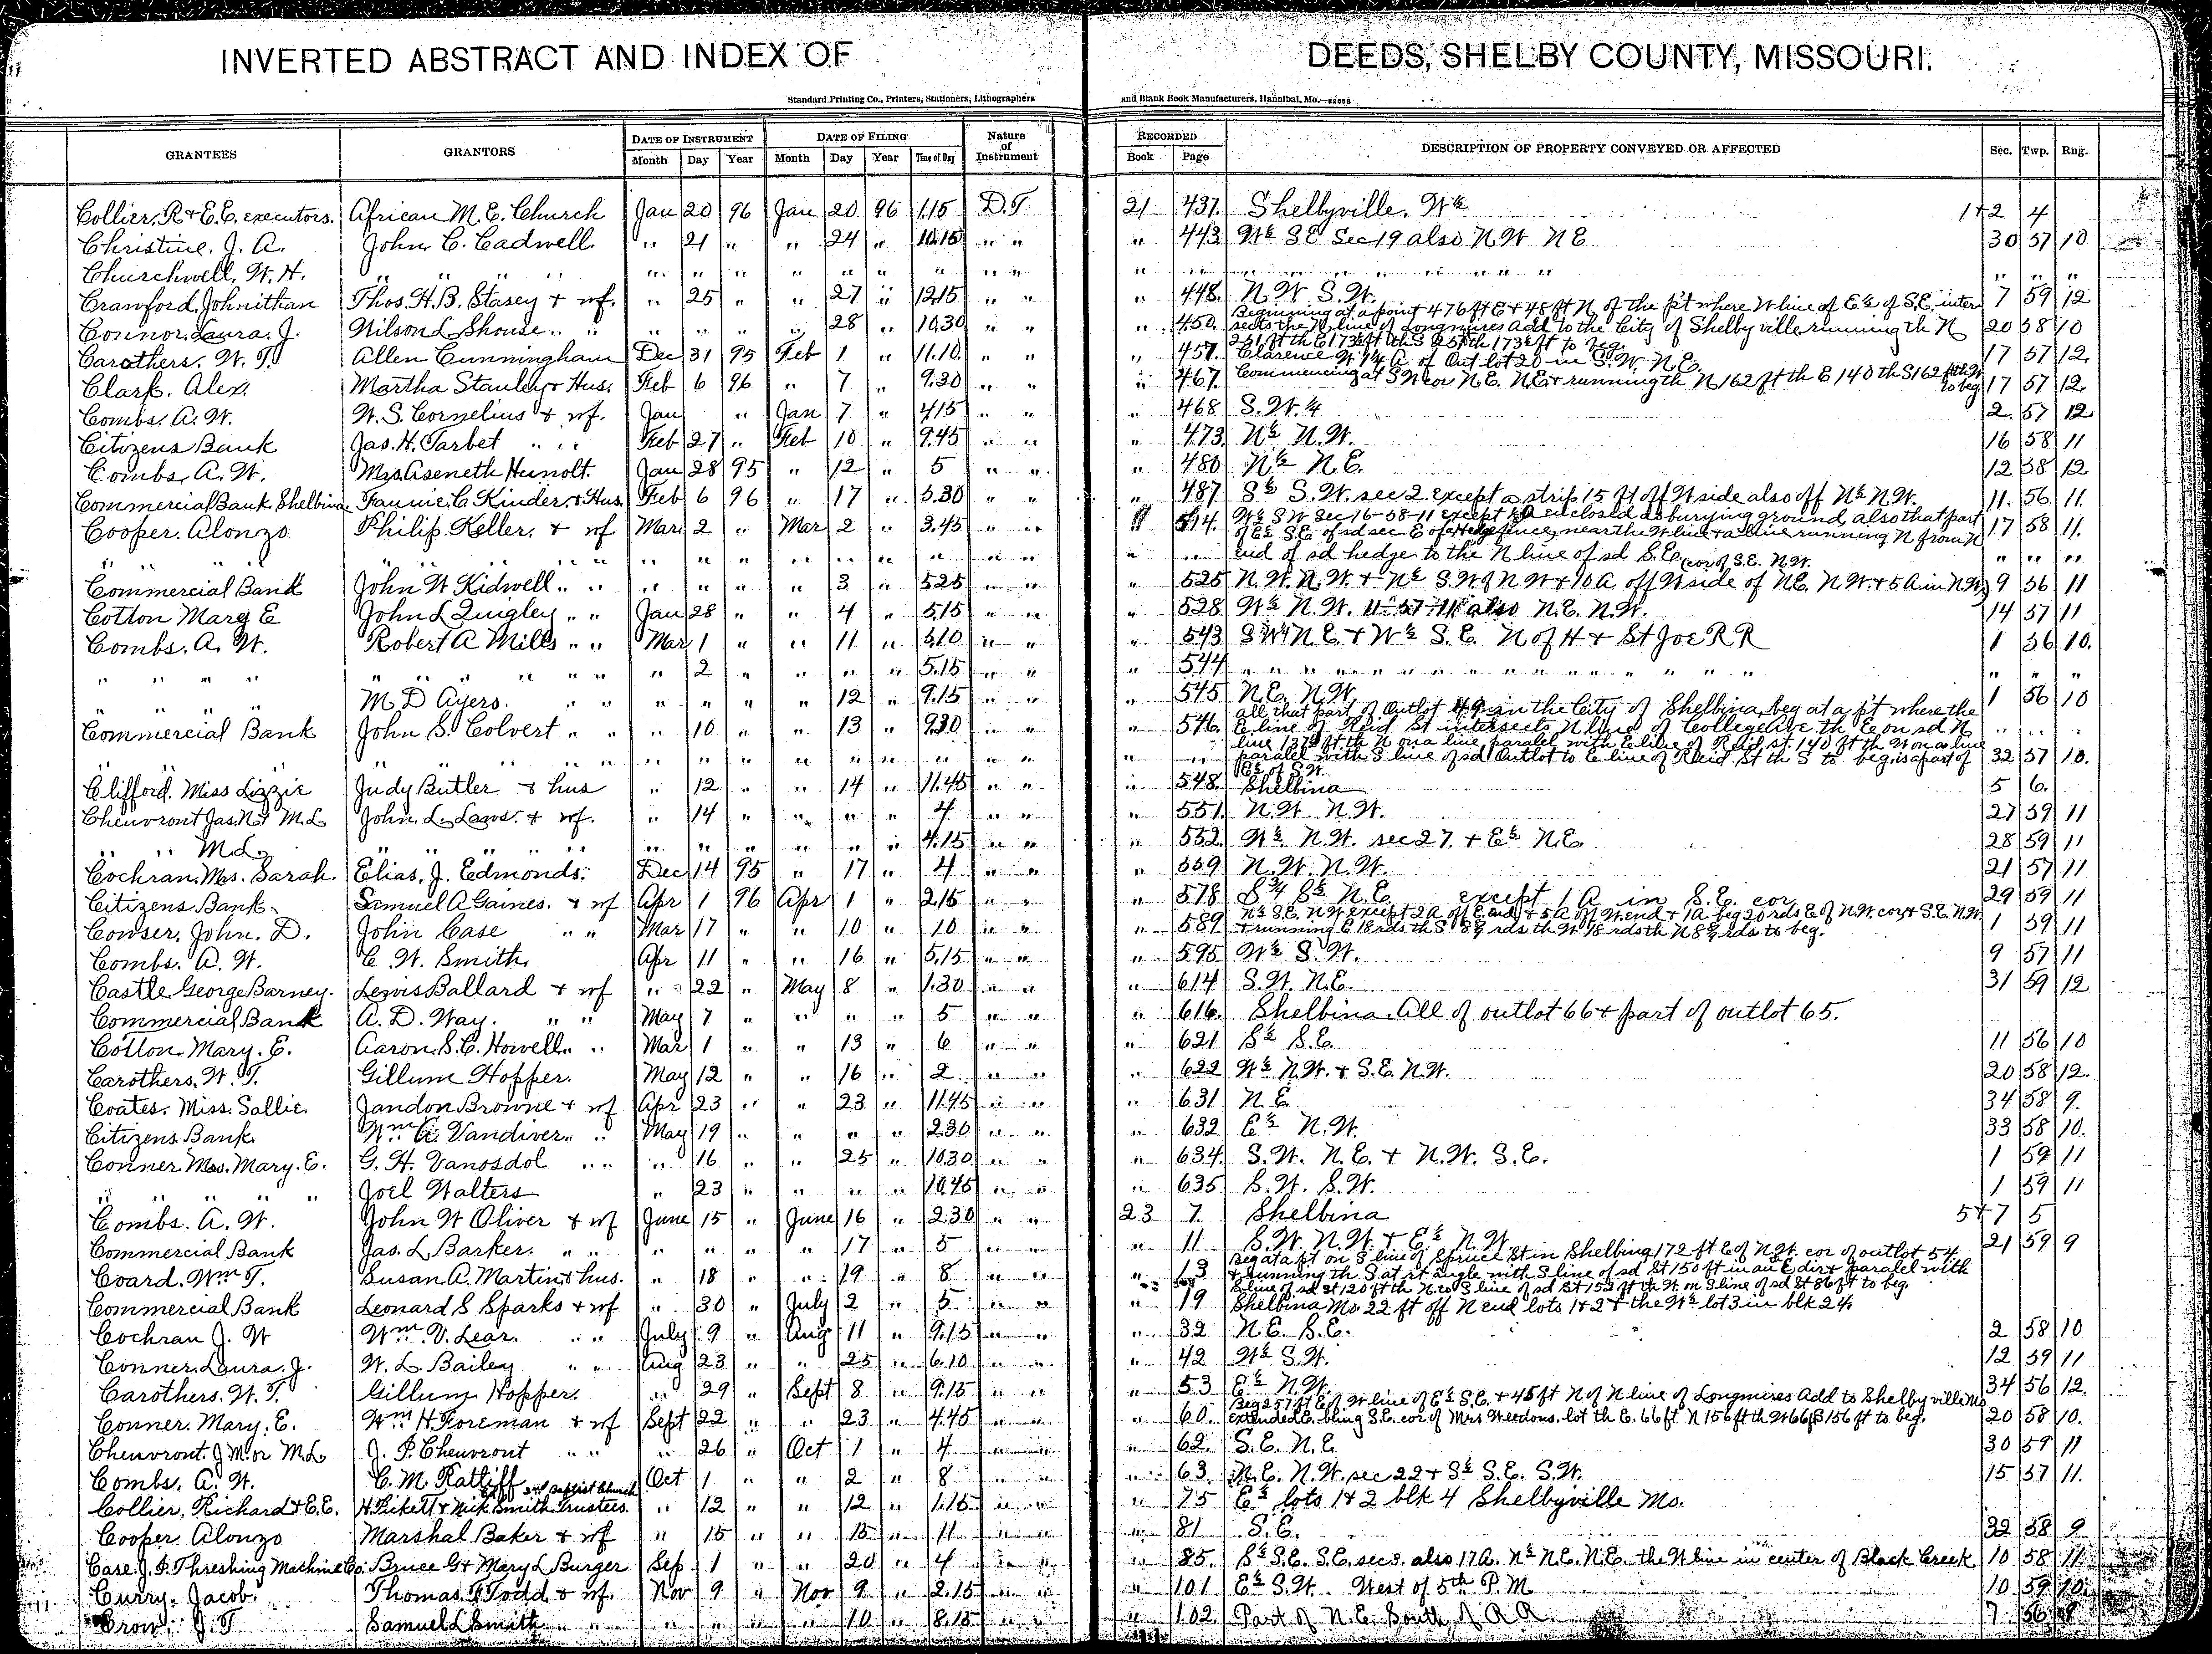 INVERTED ABSTRACT AND INDEX OF DEEDS, SHELBY COUNTY, MISSOURI.
Standard Printing Co., Printers, Stationers, Lithographers and Blank Book Manufacturers, Hannibal, Mo.
GRANTEES GRANTORS DATE OF INSTRUMENT DATE OF FILING Nature of Instrument RECORDED DESCRIPTION OF PROPERTY CONVEYED OR AFFECTED Sec. Twp. Rng.
Month Day Year Month Day Year Time of Day Book Page
Collier, R + E.E. executors. African M.E. Church Jan 20 96 Jan 20 96 1.15 D.T. 21 437 Shellbyville, W½ 1+2 4
Christine. J. A. John C. Cadwell " 21 " " 24 " 10.15 " " " 443 W½ S.E Sec 19 also N.W N E 30 57 10
Churchwell, W. H. " " " " " " " " " " " " " " " " " " " " " " "
Crawford, Johnithan Thos. H. B. Stasey + wf. " 25 " " 27 " 12.15 " " " 448 N.W S.W. 7 59 12
Connor, Laura. J. Wilson L Shouse " " " " " " 28 " 10.30 " " " 450 Beginning at a point 476 ft E + 48 ft N, of the p't where W line of E½ of S.E. inter
sects the N line of Longmires Add to the City of Shelbyville, running th N 20 58 10
251 ft th E 173½ ft th S 251 th 173½ ft to beg.
Carothers. W. T. Allen Cunningham Dec 31 95 Feb 1 " 11.10 " " " 457 Clarence W 14 A of Out lot 20 in S.W. N.E. 17 57 12.
Clark. Alex. Martha Stanley + Hus. Feb 6 96 " 7 " 9.30 " " " 467 Commencing at S W cor N.E. N.E + running th N 162 ft th E 140 th S 162 ft th W to beg 17 57 12.
Combs. A. W. W. S. Cornelius + wf. Jan " Jan 7 " 4.15 " " " 468 S.W. ¼ 2. 57 12
Citizens Bank Jas. H. Tarbet " " Feb 27 " Feb 10 " 9.45 " " " 473 N½ N.W. 16 58 11
Combs, A. W. Mrs Aseneth Heinolt. Jan 28 95 " 12 " 5 " " " 480 N½ N.E. 12 58 12
Commercial Bank Shelbina Fannie C. Kinder + Hus. Feb 6 96 " 17 " 5.30 " " " 487 S½ S.W. sec 2 except a strip 15 ft off W side also off N½ N.W. 11. 56. 11.
Cooper. Alonzo Philip Keller. + wf Mar 2 " Mar 2 " 3.45 " " " 514 W½ SW Sec 16-58-11 except enclosed as burying ground, also that part 17 58 11.
of E½ S.E. of sd sec E of Hedge fence, near the W line + a line running N from N
" " " " " " " " " " " " " " " " " end of sd hedge to the N line of sd S.E. " " "
Commercial Bank John W Kidwell " " " " " " 3 " 5.25 " " " 525 N.W. N.W. + N½ S.W of N W + 10 A off W side of NE. N.W. + 5 A in N.W. cor of S.E. N.W. 9 56 11
Cotton Mary E John L Quigley " " Jan 28 " " 4 " 5.15 " " " 528 W½ N.W. 11-57-11 also N.E. N.W. 14 57 11
Combs. A. W. Robert A Mills " " Mar 1 " " 11 " 5.10 " " " 543 SW¼ N E + W½ S.E. N of H + St Joe R R 1 56 10.
" " " " " " " " " 2 " " " " 5.15 " " " 544 " " " " " " " " " " " "
" " " M D Ayers. " " " " " " 12 " 9.15 " " " 545 N.E. N.W. 1 56 10
Commercial Bank John S. Colvert " " " 10 " " 13 " 9.30 " " " 546 all that part of Outlot 49 in the City of Shelbina, beg at a pt where the
E line of Reid St intersects N line of College Ave. th E on sd N
line 137½ ft th N on a line paralel with E line of Reid st. 140 ft th W on a line
" " " " " " " " " " " " " " " " paralel with S line of sd Outlot to E line of Reid St th S to beg. is a part of 32 57 10.
E½ of S.W.
Clifford. Miss Lizzie Judy Butler + hus " 12 " " 14 " 11.45 " " " 548 Shelbina 5 6.
Cheuvront Jas. N. + M.L. John. L. Laws. + wf. " 14 " " " " 4 " " " 551 N.W. N.W. 27 59 11
" " M L. " " " " " " " " " " 4.15 " " " 552 W½ N.W. sec 27. + E½ N.E. 28 59 11
Cochran, Mrs. Sarah. Elias. J. Edmonds. Dec 14 95 " 17 " 4 " " " 559 N.W. N.W. 21 57 11
Citizens Bank Samuel A Gaines. + wf Apr 1 96 Apr 1 " 2.15 " " " 578 S¾ S½ N.E. except 1 A in S.E. cor 29 59 11
Cowser, John. D. John Case " " Mar 17 " " 10 " 10 " " " 589 N½ S.E. N.W except 2 A off E end + 5 A off W. end + 1 A beg 20 rds E of N.W. cor + S.E. N.W. 1 59 11
+ running E 18 rds th S. 8½ rds th W 18 rds th N 8½ rds to beg.
Combs. A. W. C. W. Smith Apr 11 " " 16 " 5.15 " " " 595 W½ S.W. 9 57 11
Castle George Barney. Lewis Ballard + wf " 22 " May 8 " 1.30 " " " 614 S.W. N.E. 31 59 12
Commercial Bank A. D. Way. " " May 7 " " " " 5 " " " 616 Shelbina. All of outlot 66 + part of outlot 65.
Cotton Mary. E. Aaron. S. C. Howell " " Mar 1 " " 13 " 6 " " " 621 S½ S.E. 11 56 10
Carothers. W. T. Gillum Hopper. May 12 " " 16 " 2 " " " 622 W½ N.W. + S.E. N.W. 20 58 12.
Coates. Miss. Sallie. Jandon Browne + wf Apr 23 " " 23 " 11.45 " " " 631 N.E 34 58 9.
Citizens Bank Wm A. Vandiver " " May 19 " " " " 2.30 " " " 632 E½ N.W. 33 58 10.
Conner Mrs. Mary. E. G. H. Vanosdol " " " 16 " " 25 " 10.30 " " " 634 S.W. N.E. + N.W. S.E. 1 59 11
" " " " Joel Walters " 23 " " " " 10.45 " " " 635 S.W. S.W. 1 59 11
Combs. A. W. John W Oliver + wf June 15 " June 16 " 2.30 " " 23 7 Shelbina 5+7 5
Commercial Bank Jas. L Barker. " " " " " " 17 " 5 " " " 11 S.W. N.W + E½ N.W. 21 59 9
Coard. Wm T. Susan A. Martin + hus. " 18 " " 19 " 8 " " " 13 Beg at a pt on S line of Spruce St in Shelbina 172 ft E of N.W. cor of outlot 54
+ running th S. at rt angle with S line of sd St 150 ft in an E dir + paralel with
S line of sd st 120 ft th N. to S line of sd St 152 ft th W. on S line of sd St 86 ft to beg.
Commercial Bank Leonard S Sparks + wf " 30 " July 2 " 5 " " " 19 Shelbina Mo. 22 ft off N end lots 1+2 + the W½ lot 3 in blk 24
Cochran J. W Wm. V. Lear. " " July 9 " Aug 11 " 9.15 " " " 32 N.E. S.E. 2 58 10
Conner Laura. J. W. L. Bailey " " Aug 23 " " 25 " 6.10 " " " 42 W½ S.W. 12 59 11
Carothers. W. T. Gillum Hopper. " 29 " Sept 8 " 9.15 " " " 53 E½ N.W. 34 56 12.
Conner. Mary. E. Wm. H. Foreman + wf Sept 22 " " 23 " 4.45 " " " 60 Beg 257 ft E of W line of E½ S.E. + 45 ft N of N line of Longmires Add to Shelbyville Mo
extended E. bling S.E. cor of Mrs Weedons. lot th E. 66 ft N 156 ft th W 66 ft S 156 ft to beg. 20 58 10.
Cheuvront. J M. or M.L. J. P. Cheuvront " " " 26 " Oct 1 " 4 " " " 62 S.E. N.E 30 59 11
Combs. A. W. C. M. Ratliff Oct 1 " " 2 " 8 " " " 63 N.E. N.W. sec 22 + S½ S.E. S.W. 15 57 11.
Collier, Richard + E.E. H. Pickett + Nick Smith Trustees 2nd Baptist Church " 12 " " 12 " 1.15 " " " 75 E½ lots 1+2 blk 4 Shelbyville Mo.
Cooper Alonzo Marshal Baker + wf " 15 " " 15 " 11 " " " 81 S.E. 32 58 9
Case J. I. Threshing Machine Co. Bruce G + Mary L Burger Sep 1 " " 20 " 4 " " " 85 S½ S.E. S.E. sec 3. also 17 A. N½ N.E. N.E. the W line in center of Black Creek 10 58 11
Curry. Jacob. Thomas. F. Todd + wf. Nov 9 " Nov 9 " 2.15 " " " 101 E½ S.W. West of 5th P.M 10 59 10.
Crow. J. T Samuel L Smith " " " " " " 10 " 8.15 " " " 102 Part of N.E. South of R R. 7 56